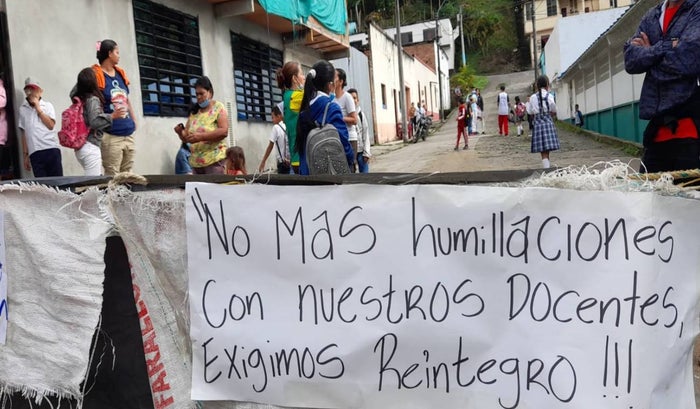 "No Mas humillaciones
Con nuestros Docentes,
Exigimos Reintegro !!!